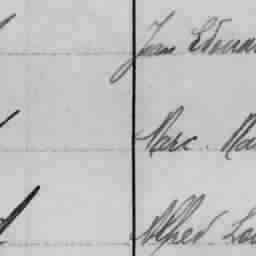 Jean Edouar
Marc Ma
Alfred Lou